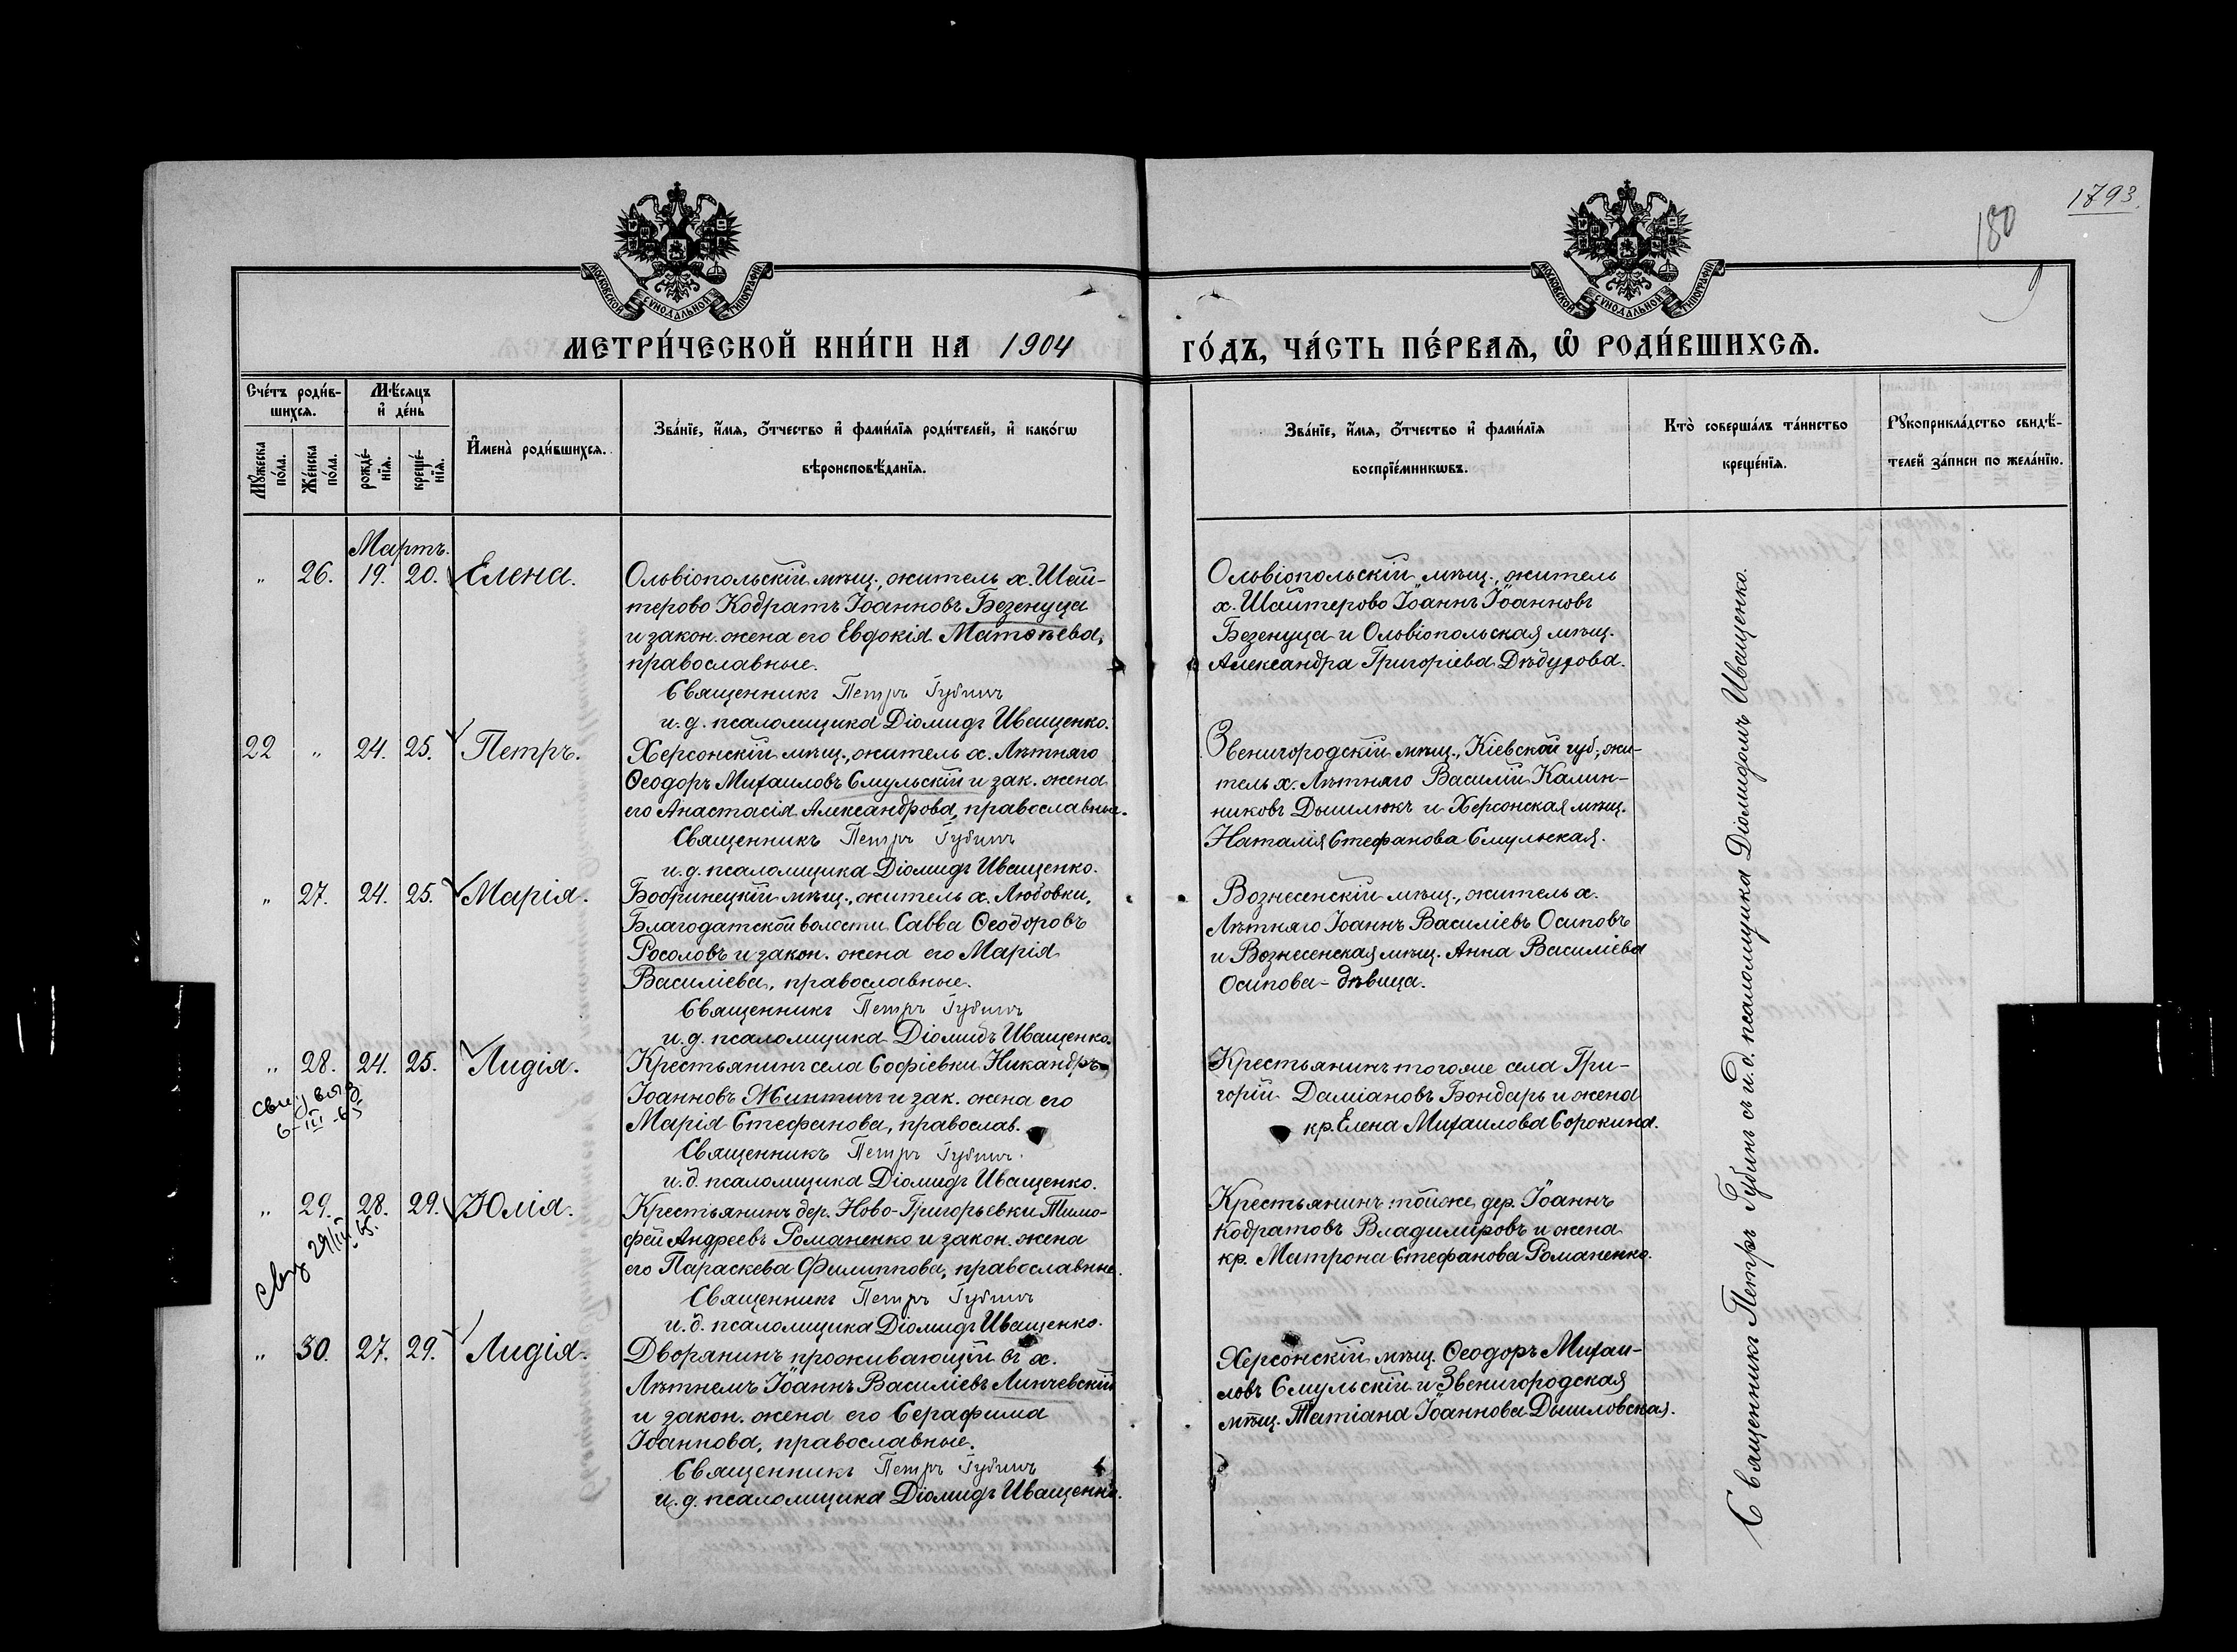 1793
180
МОСКОВСКОЙ СѴНОДАЛЬНОЙ ТИПОГРАФІИ
МОСКОВСКОЙ СѴНОДАЛЬНОЙ ТИПОГРАФІИ
МЕТРИ́ЧЕСКОЙ КНИ́ГИ НА 1904
ГО́ДЪ, ЧА́СТЬ ПЕ́РВАѦ, Ѡ РОДИ́ВШИХСѦ.
Сче́тъ роди́в-
шихсѧ.
Мꙋ́жеска по́ла.
Же́нска по́ла.
Мѣ́сѧцъ
и҆ де́нь
рожде́-
нїѧ.
креще́-
нїѧ.
И҆мена̀ роди́вшихсѧ.
Зва́нїе, и҆́мѧ, ѻ҆́тчество и҆ фами́лїѧ роди́телей, и҆ како́гѡ
вѣроисповѣ́данїѧ.
Зва́нїе, и҆́мѧ, ѻ҆́тчество и҆ фами́лїѧ
воспрїе́мникѡвъ.
Кто̀ соверша́лъ та́инство
креще́нїѧ.
Рꙋкоприкла́дство свидѣ́-
телей за́писи по жела́нїю.
Мартъ.
„ 26. 19. 20. Елена.
Ольвіопольскій мѣщ., житель х. Шей-
терово Кодратъ Іоанновъ Безенуца
и закон. жена его Евдокія Матѳѣева,
православные.
Священникъ Петръ Губинъ
и. д. псаломщика Діомидъ Иващенко.
Ольвіопольскій мѣщ., житель
х. Шайтерово Іоаннъ Іоанновъ
Безенуца и Ольвіопольская мѣщ.
Александра Григоріева
22 „ 24. 25. Петръ.
Херсонскій мѣщ., житель х. Лѣтняго
Ѳеодоръ Михаиловъ Смульскій и зак. жена
его Анастасія Александрова, православные.
Священникъ Петръ Губинъ
и. д. псаломщика Діомидъ Иващенко.
Звенигородскій мѣщ., Кіевской губ., жи-
тель х. Лѣтняго Василій Калин-
никовъ Дышлюкъ и Херсонская мѣщ.
Наталія Стефанова Смульская.
„ 27. 24. 25. Марія.
Бобринецкій мѣщ., житель х. Любовки,
Благодатской волости Савва Ѳеодоровъ
Росоловъ и закон. жена его Марія
Василіева, православные.
Священникъ Петръ Губинъ
и. д. псаломщика Діомидъ Иващенко.
Вознесенскій мѣщ., житель х.
Лѣтняго Іоаннъ Василіевъ Осиповъ
и Вознесенская мѣщ. Анна Василіева
Осипова - дѣвица.
„ 28. 24. 25. Лидія.
6-III-65
Крестьянинъ села Софіевки Никандръ
Іоанновъ Жинтичъ и зак. жена его
Марія Стефанова, православ.
Священникъ Петръ Губинъ.
и. д. псаломщика Діомидъ Иващенко.
Крестьянинъ тогоже села Гри-
горій Даміановъ Бондарь и жена
кр. Елена Михаилова Сорокина.
„ 29. 28. 29. Юлія.
29/III-65.
Крестьянинъ дер. Ново-Григорьевки Тимо-
фей Андреевъ Романенко и закон. жена
его Параскева Филиппова, православные.
Священникъ Петръ Губинъ
и. д. псаломщика Діомидъ Иващенко.
Крестьянинъ тойже дер. Іоаннъ
Кодратовъ Владиміровъ и жена
кр. Матрона Стефанова Романенко.
„ 30. 27. 29. Лидія.
Дворянинъ проживающій въ х.
Лѣтнемъ Іоаннъ Василіевъ Линчевскій
и закон. жена его Серафима
Іоаннова, православные.
Священникъ Петръ Губинъ
и. д. псаломщика Діомидъ Иващенко.
Херсонскій мѣщ. Ѳеодоръ Михаи-
ловъ Смульскій и Звенигородская
мѣщ. Татіана Іоаннова Дышловская.
Священникъ Петръ Губинъ съ и. д. псаломщика Діомидомъ Иващенко.